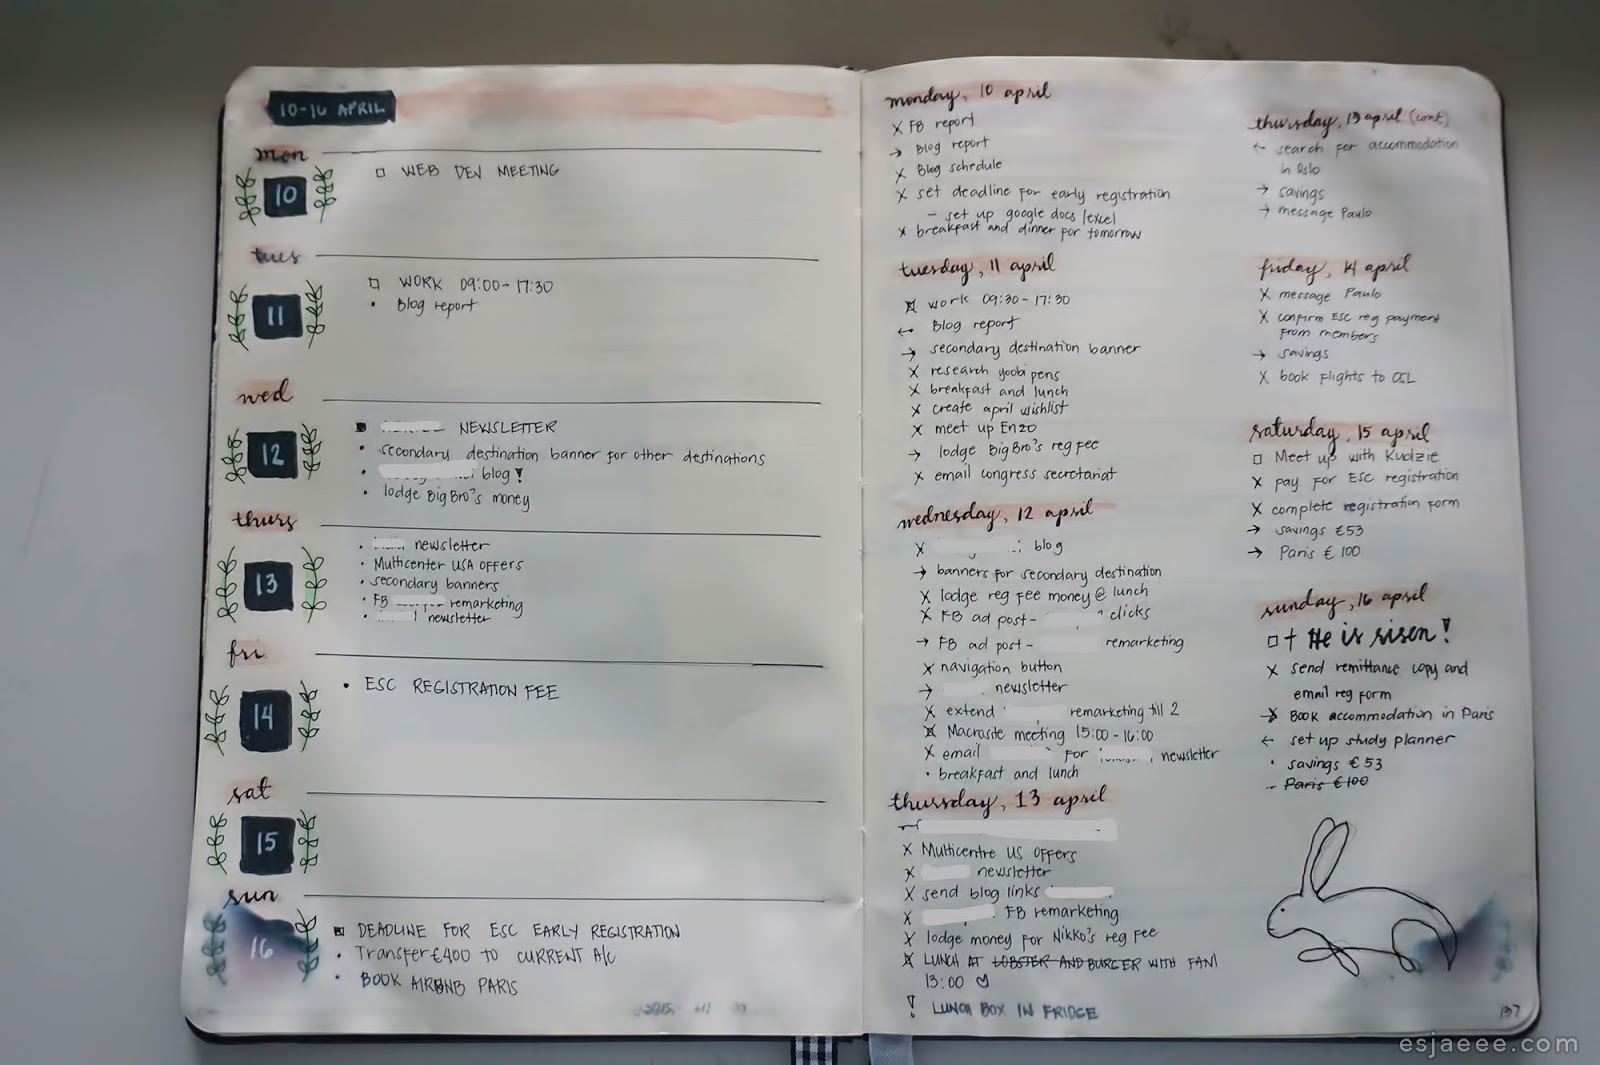 10-16 APRIL
mon
10
□ WEB DEV MEETING
tues
11
□ WORK 09:00-17:30
• Blog report
wed
12
NEWSLETTER
• secondary destination banner for other destinations
• blog!
• lodge BigBro's money
thurs
13
• newsletter
• Multicenter USA OFFERS
• secondary banners
• FB remarketing
• newsletter
fri
14
• ESC REGISTRATION FEE
sat
15
sun
16
DEADLINE FOR ESC EARLY REGISTRATION
• Transfer €400 to CURRENT A/C
• BOOK AIRBNB PARIS
monday, 10 april
x FB report
→ Blog report
x Blog schedule
x set deadline for early registration
- set up google docs/excel
x breakfast and dinner for tomorrow
tuesday, 11 april
work 09:30-17:30
← Blog report
→ secondary destination banner
x research yoobi pens
x breakfast and lunch
x create april wishlist
x meet up Enzo
→ lodge BigBro's reg fee
x email congress secretariat
wednesday, 12 april
x blog
→ banners for secondary destination
x lodge reg fee money @ lunch
x FB ad post - clicks
→ FB ad post - remarketing
x navigation button
→ newsletter
x extend remarketing till 2
Macrosite meeting 15:00-16:00
x email for newsletter
• breakfast and lunch
thursday, 13 april
x Multicentre US OFFERS
x newsletter
x send blog links
x FB remarketing
x lodge money for Nikko's reg fee
LUNCH AT LOBSTER AND BURGER WITH FANI
13:00 ♡
! LUNCH BOX IN FRIDGE
thursday, 13 april (cont)
← search for accommodation
in Oslo
→ savings
→ message Paulo
friday, 14 april
x message Paulo
x confirm ESC reg payment
from members
→ savings
x book flights to OSL
saturday, 15 april
□ Meet up with Kudzie
x pay for ESC registration
x complete registration form
→ savings €53
→ Paris €100
sunday, 16 april
□ † He is risen!
x send remittance copy and
email reg form
Book accommodation in Paris
← set up study planner
• savings €53
- Paris €100
137
esjaeee.com